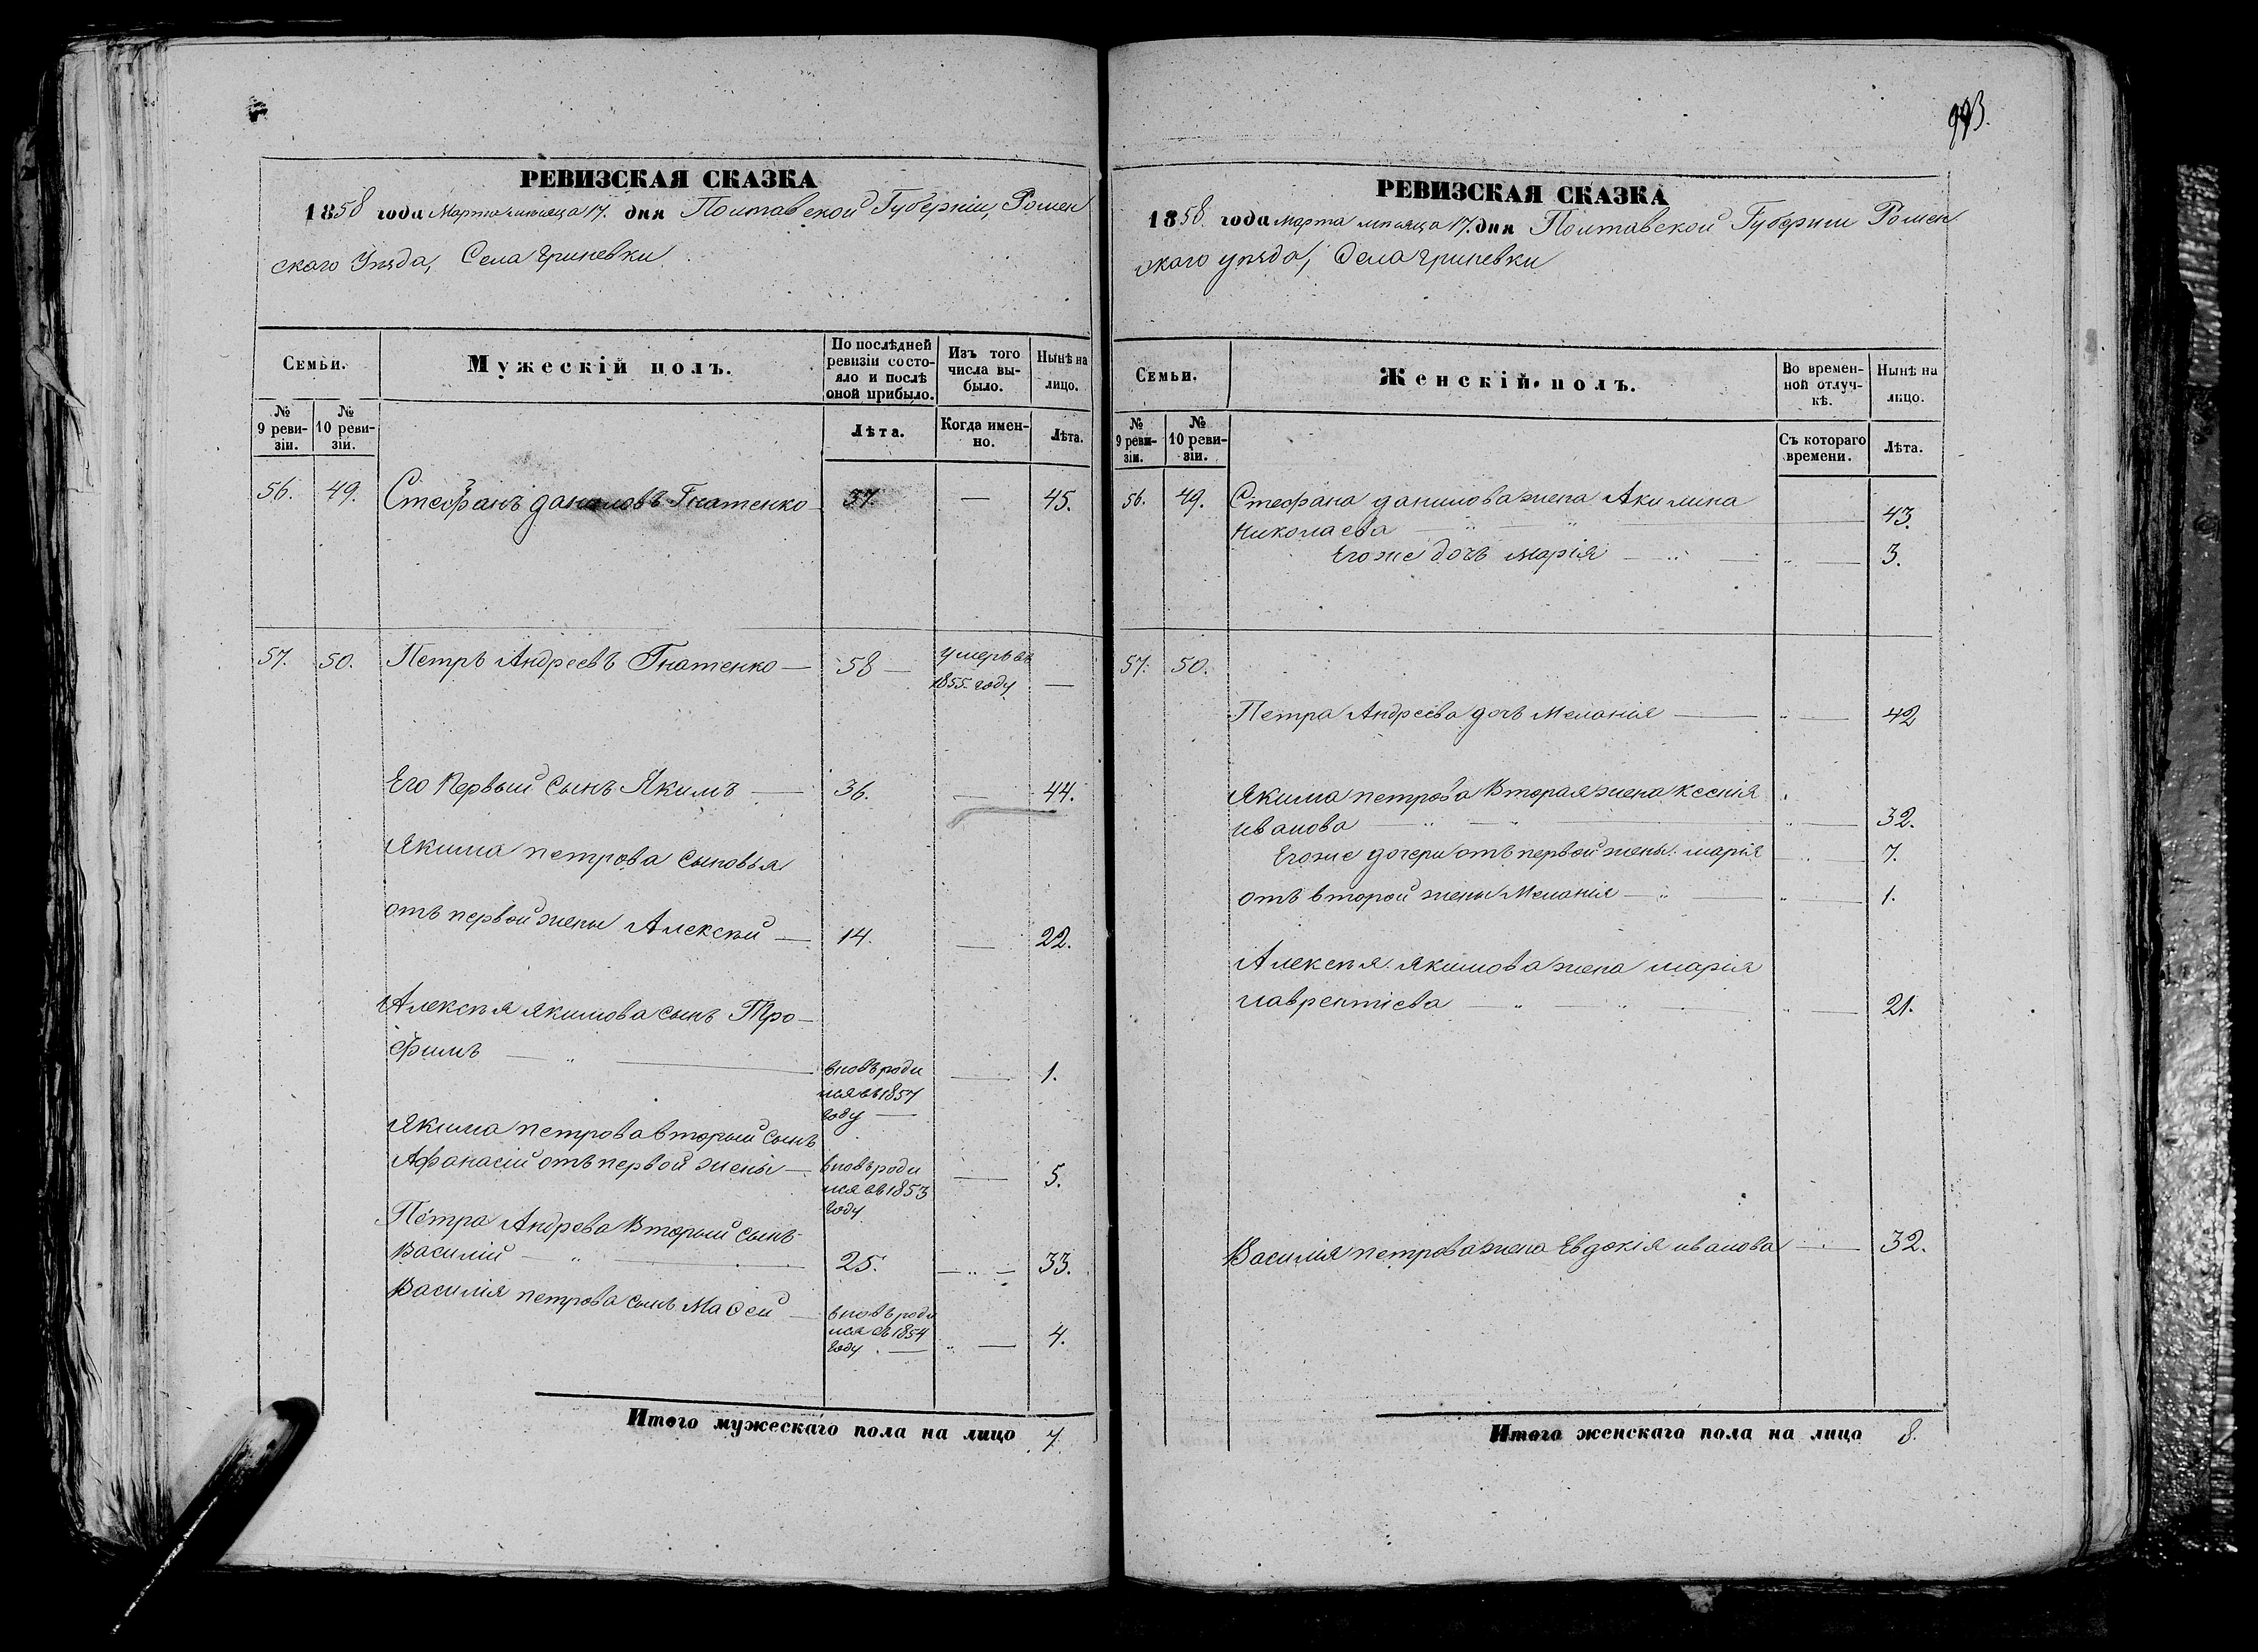 993.
РЕВИЗСКАЯ СКАЗКА
1858 года Марта мѣсяца 17. дня Полтавской Губерніи, Ромен
скаго Уѣзда, Села Гриневки
Семьи.
Мужескій полъ.
По послѣдней ревизіи состояло и послѣ оной прибыло.
Изъ того числа выбыло.
Нынѣ на лицо.
№ 9 ревизіи.
№ 10 ревизіи.
Лѣта.
Когда именно.
Лѣта.
56. 49. Стефанъ Даниловъ Гнатенко 37. — 45.
57. 50. Петръ Андреевъ Гнатенко — 58 — умеръ въ
1855. году —
Его Первый Сынъ Якимъ — 36. — 44.
Якима Петрова Сыновья
отъ первой жены Алексѣй — 14. — 22.
Алексѣя Якимова сынъ Тро-
фимъ — " — вновь роди — 1.
лся въ 1857
году —
Якима Петрова вторый сынъ
Афанасій отъ первой жены — вновь роди — 5.
лся въ 1853
году
Петра Андрева Вторый Сынъ
Василій — " — 25. — " — 33.
Василія Петрова сынъ Маѳей — вновь роди
лся въ 1854 " — 4.
году. —
Итого мужескаго пола на лицо 7.
РЕВИЗСКАЯ СКАЗКА
1858. года марта мѣсяца 17. дня Полтавской Губерніи Ромен
скаго уѣзда, Села Гриневки
Семьи.
Женскій полъ.
Во временной отлучкѣ.
Нынѣ на лицо.
№ 9 ревизіи.
№ 10 ревизіи.
Съ котораго времени.
Лѣта.
56. 49. Стефана Данилова жена Акилина
Николаева — 43.
Егоже дочь Марія — " — " — 3.
57. 50.
Петра Андреева дочь Меланія — " — 42
Якима Петрова Вторая жена Ксенія
Иванова — " — " — 32.
Егоже дочери отъ первой жены: Марія — 7.
отъ второй жены Меланія — " — " — 1.
Алексѣя Якимова жена Марія
Лаврентіева — " — " — 21.
Василія Петрова жена Евдокія Иванова — 32.
Итого женскаго пола на лицо 8.